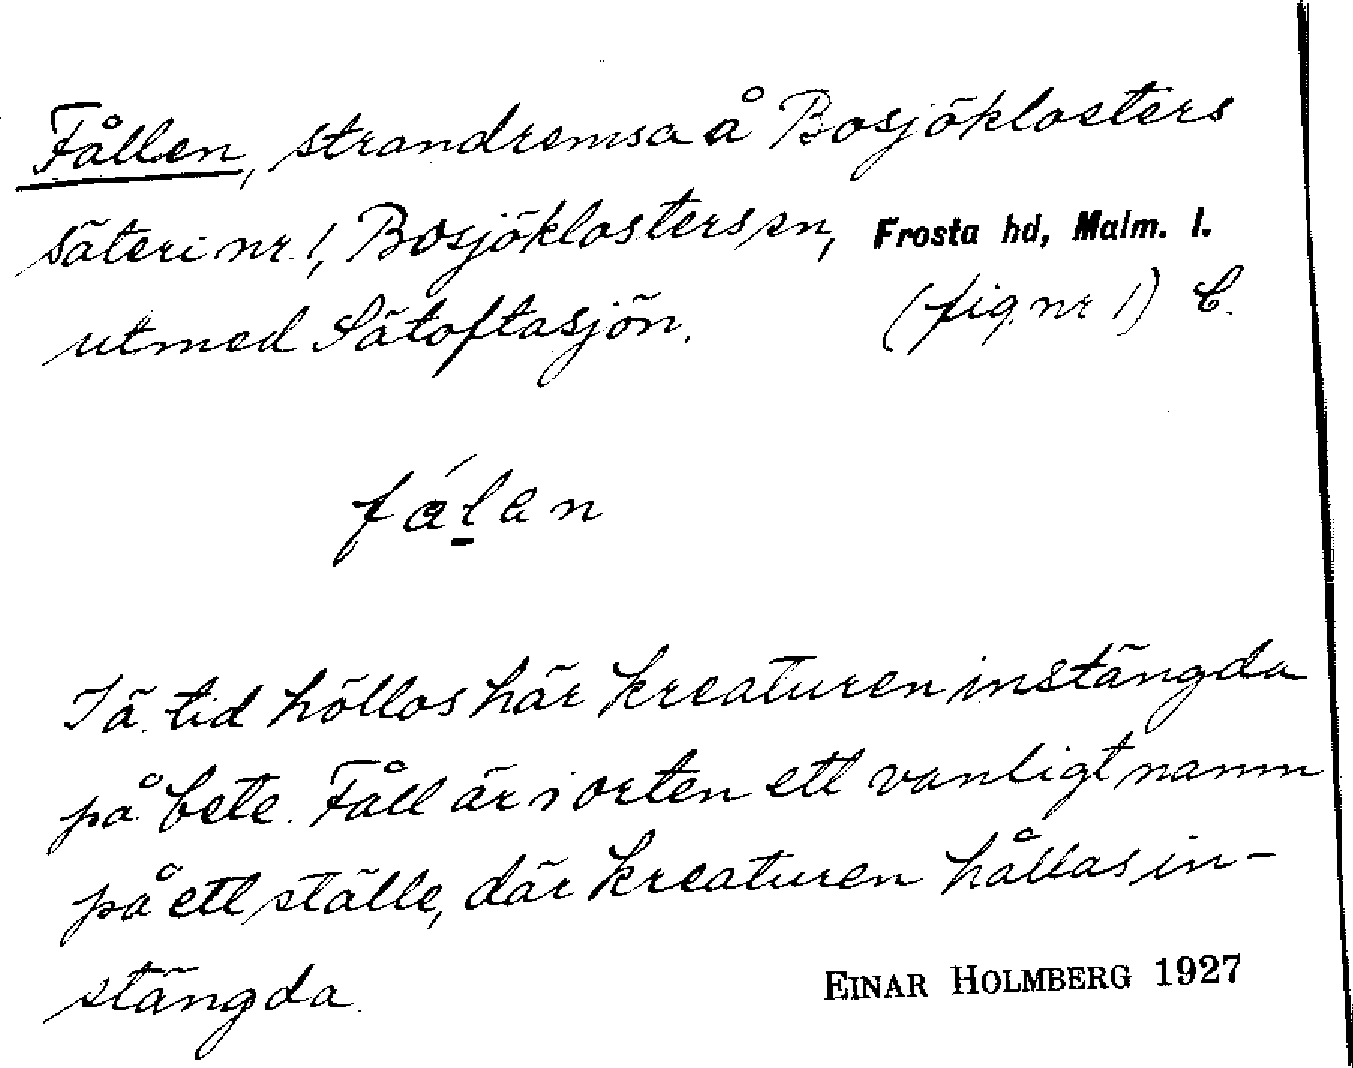 Fållen, strandremsa å Bosjöklosters
säteri nr 1, Bosjöklosters sn, Frosta hd, Malm. l.
utmed Sätoftasjön. (fig. nr 1) C.
fålan
I ä. tid höllos här kreaturen instängda
på bete. Fåll är i orten ett vanligt namn
på ett ställe, där kreaturen hållas in-
stängda.
EINAR HOLMBERG 1927